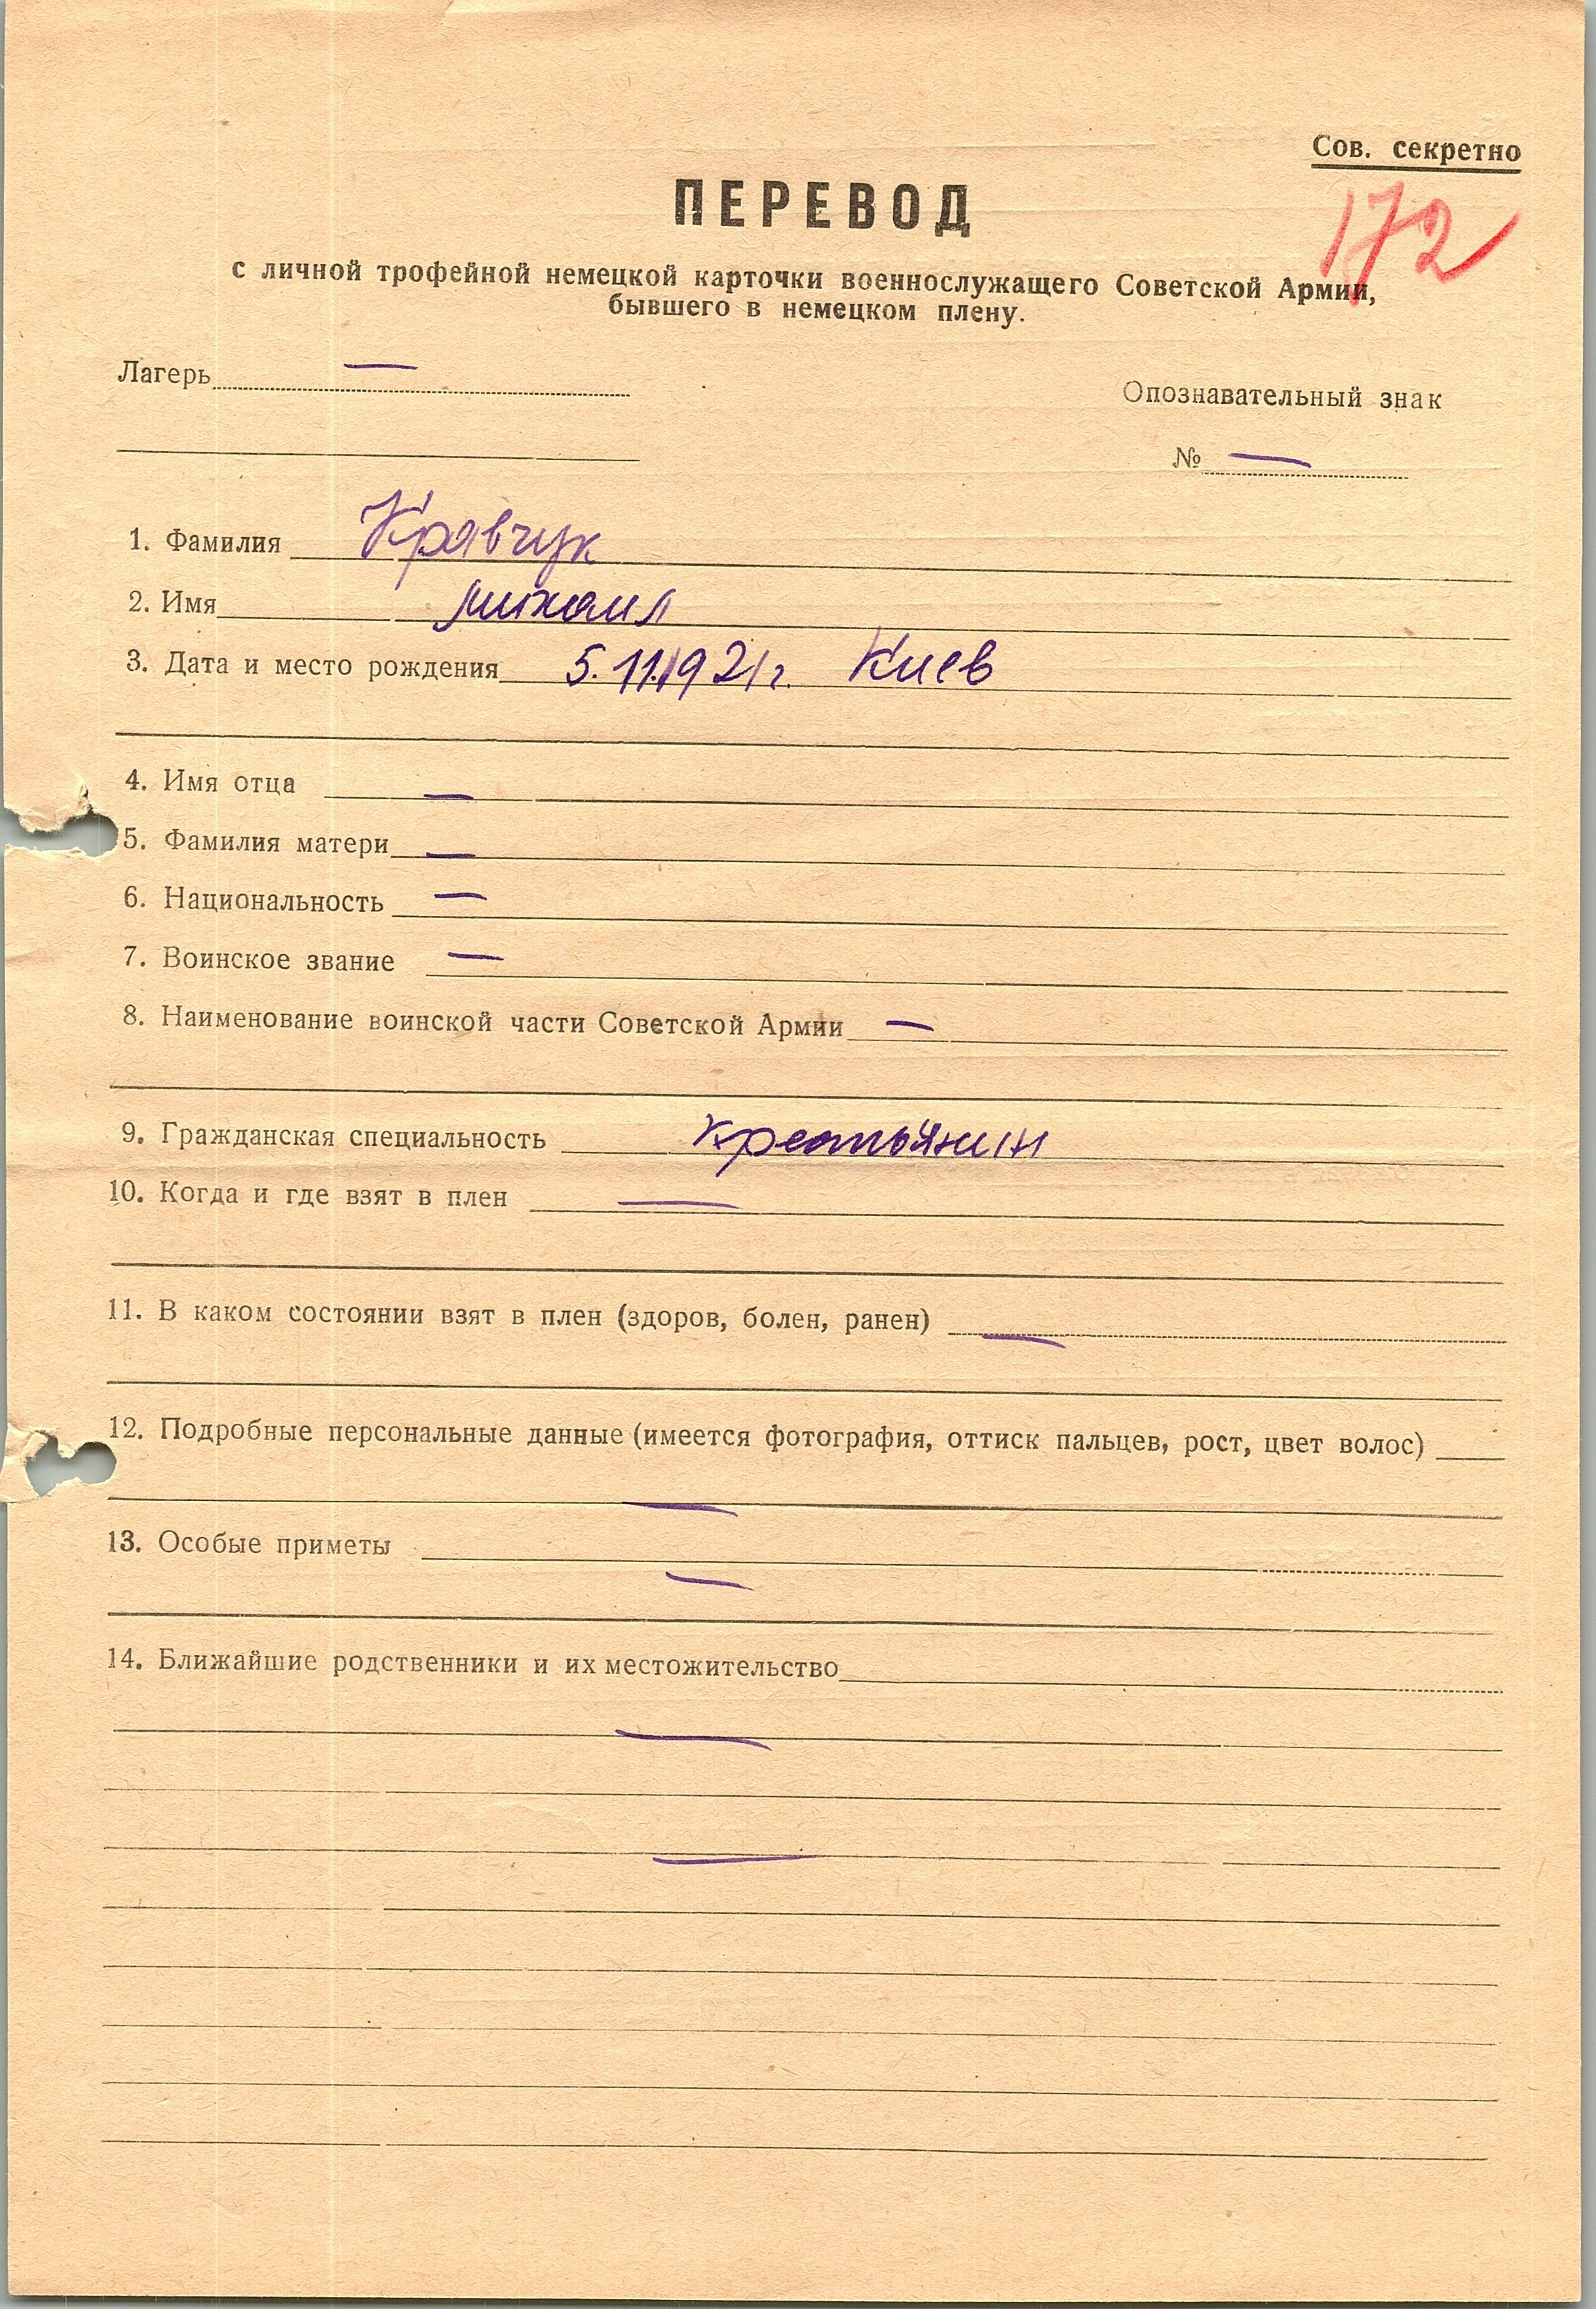 Сов. секретно
172
ПЕРЕВОД
с личной трофейной немецкой карточки военнослужащего Советской Армии,
бывшего в немецком плену.
Лагерь —
Опознавательный знак
№ —
1. Фамилия Кравчук
2. Имя Михаил
3. Дата и место рождения 5.11.1921г. Киев
4. Имя отца —
5. Фамилия матери —
6. Национальность —
7. Воинское звание —
8. Наименование воинской части Советской Армии —
9. Гражданская специальность крестьянин
10. Когда и где взят в плен —
11. В каком состоянии взят в плен (здоров, болен, ранен) —
12. Подробные персональные данные (имеется фотография, оттиск пальцев, рост, цвет волос)
—
13. Особые приметы
—
14. Ближайшие родственники и их местожительство
—
—